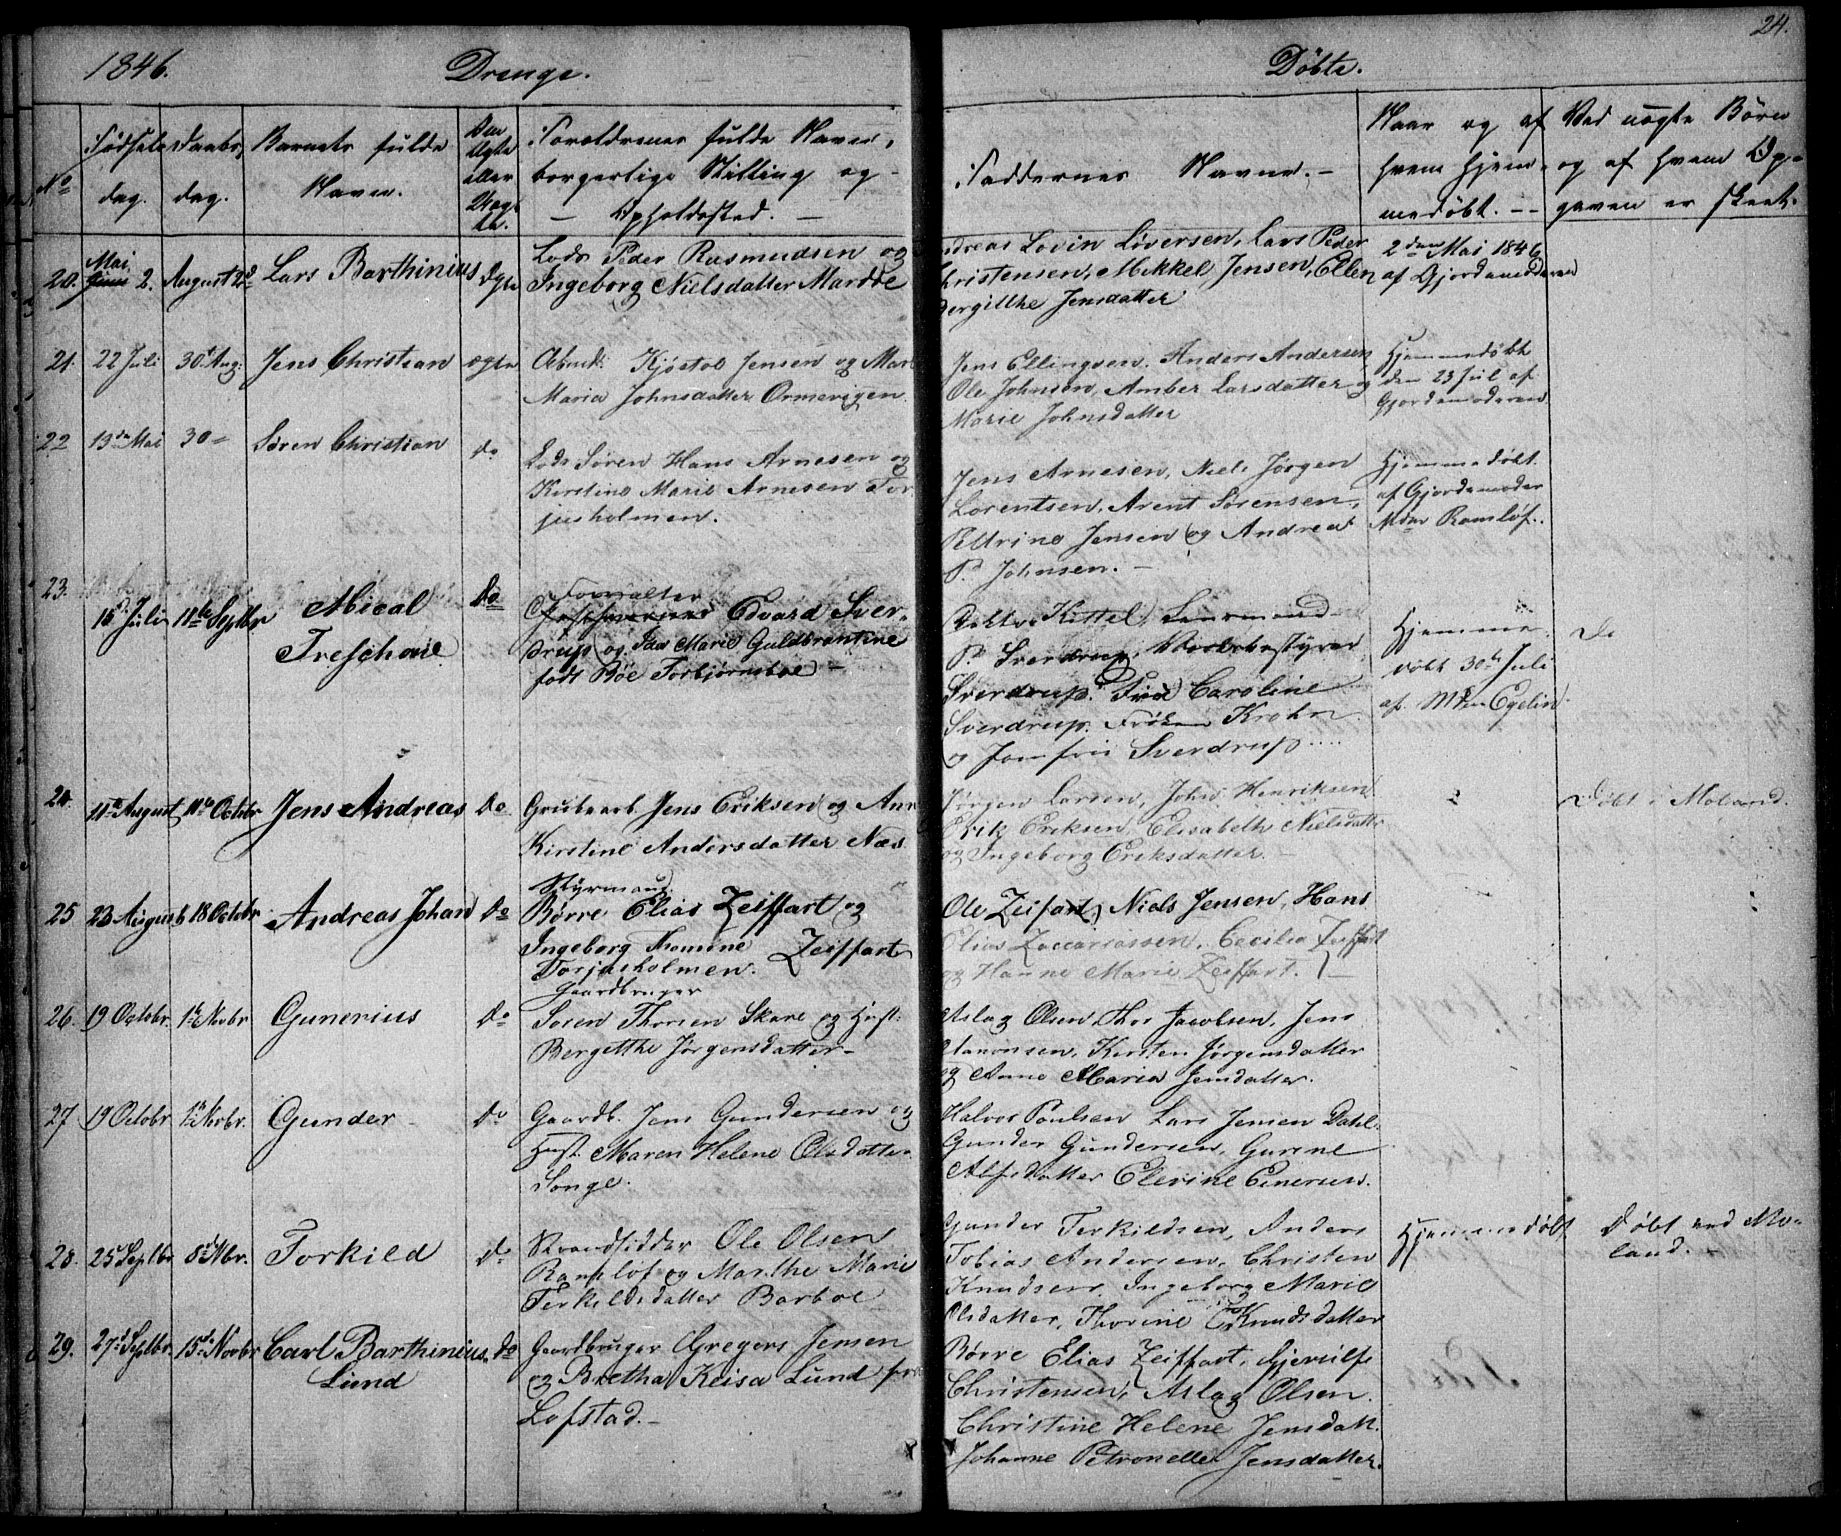 1846.
Drenge.
Døbte.
24.
No
Fødsels
dag.
Daabs,
dag.
Barnets fulde
Navn.
Om
Ægte
eller
Uægt
te.
Forældrenes fulde Navn,
borgerlige Stilling og
Opholdssted.
Faddernes Navne.
Naar og af
hvem Hjem-
medøbt.
Ved uægte Børn
og af hvem Op-
gaven er skeet.
20. Mai 2. August 2d Lars Barthinius Ægte
Lods Peder Rasmudsen og
Ingeborg Nielsdatter Mardøe
Andreas Lovin Løversen, Lars Peder
Christensen, Mikkel Jensen, Ellen
Bergitthe Jensdatter
2den Mai 1846
af Gjordemoderen
21. 22 Juli 30t Aug: Jens Christian ægte
Arbmd: Kjøstol Jensen og Mar
Maria Johnsdatter Ormevigen.
Jens Ellingsen, Anders Andersen
Ole Johnsen, Amber Larsdatter og
Marie Johnsdatter
Hjemmedøbt
den 23 Jul af
Gjordemoderen
22 13de Mai 30 Søren Christian do
Lods Søren Hans Arnesen og
Kirstine Marie Arnesen Tor
jusholmen.
Jens Arnesen, Niels Jørgen
Lorentsen, Arent Sørensen,
Petrine Jensen og Andrea
P. Johnsen.
Hjemmedøbt
af Gjordemoder
Mdm Ramsløf.
23. 16 Juli 18de Septbr Mical
Treschow Do
Forvalter
Edvard Sver-
drup og Ida Marie Guldbrantine
født Bøe Torbjørnsboe
Doktor Kittel,
P. Sverdrup, Værksbestyrer
Sverdrup. Frue Caroline
Sverdrup. Frøken Krohn
og Jomfru Sverdrup
Hjemme-
døbt 30te Juli
af Mdm Egelin
Do
24. 11te August 11te Octobr Jens Andreas Do
Grubearb Jens Eriksen og Ann
Kirstine Andersdatter Næs
Jørgen Larsen, John Henriksen
Erik Eriksen, Elisabeth Nielsdattr
og Ingeborg Eriksdatter.
Døbt i Moland.
25 23 August 18 Octobr Andreas Johan Do
Styrmand
Børre Elias Zeiffart og
Ingeborg Thomine Zeiffart
Torjusholmen.
Ole Zeifart, Niels Jensen, Hans
Elias Zaccariassen, Cecilia Zeiffart
og Hanne Marie Zeiffart.
26. 19 Octobr. 1te Novbr Gunerius Do
Gaardbruger
Søren Thorsen Skare og Hust:
Bergitthe Jørgensdatter
Aslag Olsen, Thor Jacobsen, Jens
Aanonsen, Kirsten Jørgensdatter
og Anne Maria Jensdatter.
27 19 Octobr 1te Novbr. Gunder Do
Gaardb. Jens Gundersen og
Hust. Maren Helene Olsdatter
Songe.
Halvor Poulsen Lars Jensen Dahl
Gunder Gundersen, Gurine
Alfsdatter Elevine Einersen.
28. 25 Septbr. 8de Nbr. Torkild do
Strandsidder Ole Olsen
Ramsløf og Marthe Marie
Terkildsdatter Barboe
Gunder Terkildsen, Anders
Tobias Andersen, Christen
Knudsen, Ingeborg Marie
Olsdatter, Thorine Knudsdatter
Hjemmedøbt
Døbt ved Mo-
land.
29. 27de Septbr. 15de Novbr Carl Barthinius
Lund Do
Gaardbruger Gregers Jensen
og Bretha Keisa Lund
Lofstad.
Børre Elias Zeiffart, Gjerulf
Christensen, Aslag Olsen.
Christine Helene Jensdatt.
Johanne Petronelle Jensdatter.